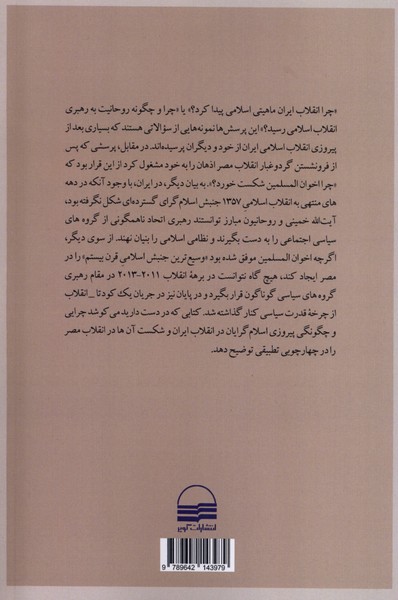 «چرا انقلاب ایران ماهیتی اسلامی پیدا کرد؟» یا «چرا و چگونه روحانیت به رهبری
انقلاب اسلامی رسید؟» این پرسش‌ها نمونه‌هایی از سؤالاتی هستند که بسیاری بعد از
پیروزی انقلاب اسلامی ایران از خود و دیگران پرسیده‌اند. در مقابل، پرسشی که پس
از فرونشستن گرد و غبار انقلاب مصر اذهان را به خود مشغول کرد از این قرار بود که
«چرا اخوان المسلمین شکست خورد؟». به بیان دیگر، در ایران، با وجود آنکه در دهه
های منتهی به انقلاب اسلامی ۱۳۵۷ جنبش اسلام گرای گسترده‌ای شکل نگرفته بود،
آیت‌الله خمینی و روحانیون مبارز توانستند رهبری اتحاد ناهمگونی از گروه های
سیاسی اجتماعی را به دست بگیرند و نظامی اسلامی را بنیان نهند. از سوی دیگر،
اگرچه اخوان المسلمین موفق شده بود «وسیع‌ترین جنبش اسلامی قرن بیستم» را در
مصر ایجاد کند، هیچ گاه نتوانست در برههٔ انقلاب ۲۰۱۱-۲۰۱۳ در مقام رهبری
گروه های سیاسی گوناگون قرار بگیرد و در پایان نیز در جریان یک کودتا _ انقلاب
از چرخهٔ قدرت سیاسی کنار گذاشته شد. کتابی که در دست دارید می کوشد چرایی
و چگونگی پیروزی اسلام‌گرایان در انقلاب ایران و شکست آن ها در انقلاب مصر
را در چهارچوبی تطبیقی توضیح دهد.
انتشارات کویر
9 789642 143979